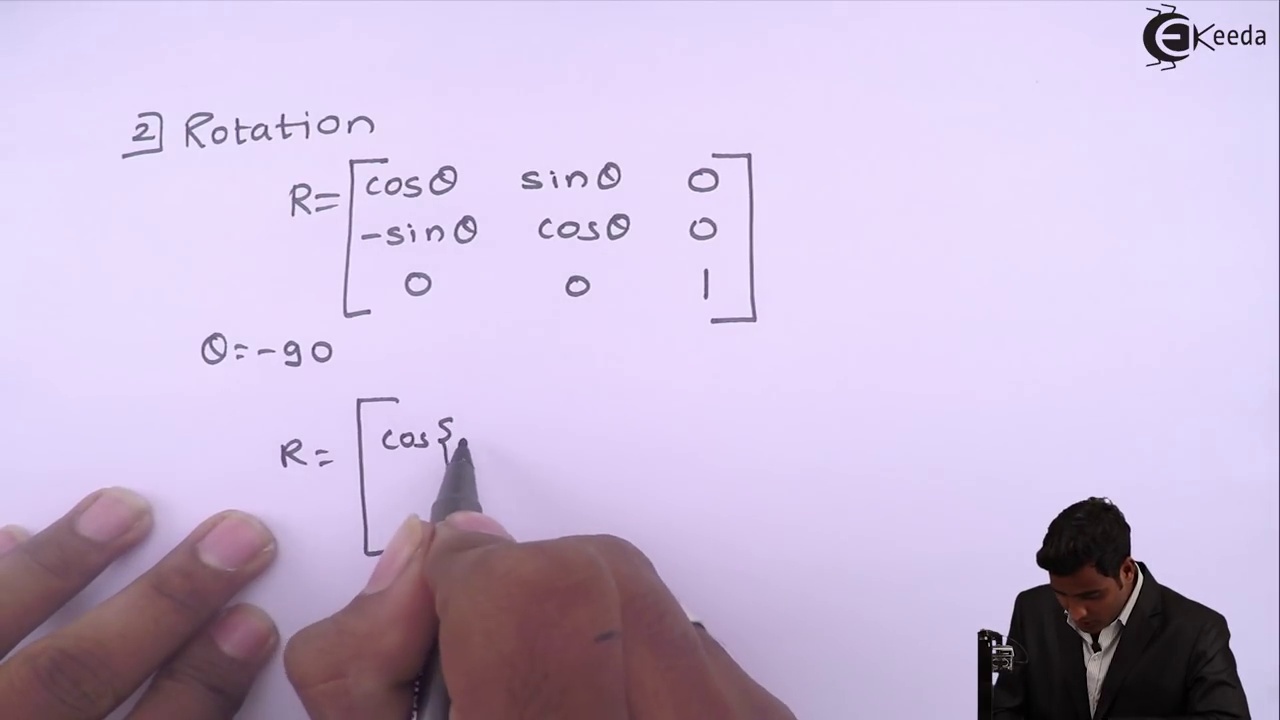 EKeeda
2] Rotation
R= [cosθ sinθ 0
-sinθ cosθ 0
0 0 1]
θ=-90
R= [cos{